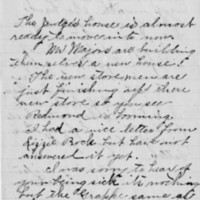 The Judge's house is almost
ready to move into now.
Mr Majors are building
themselves a new house!
The new store men are
just finishing off there
new store so you see
Redmond is booming.
I had a nice letter from
Lizzie Rock but have not
answered it yet.
I was sorry to hear of
your being sick it nothing
but the Grappe same as